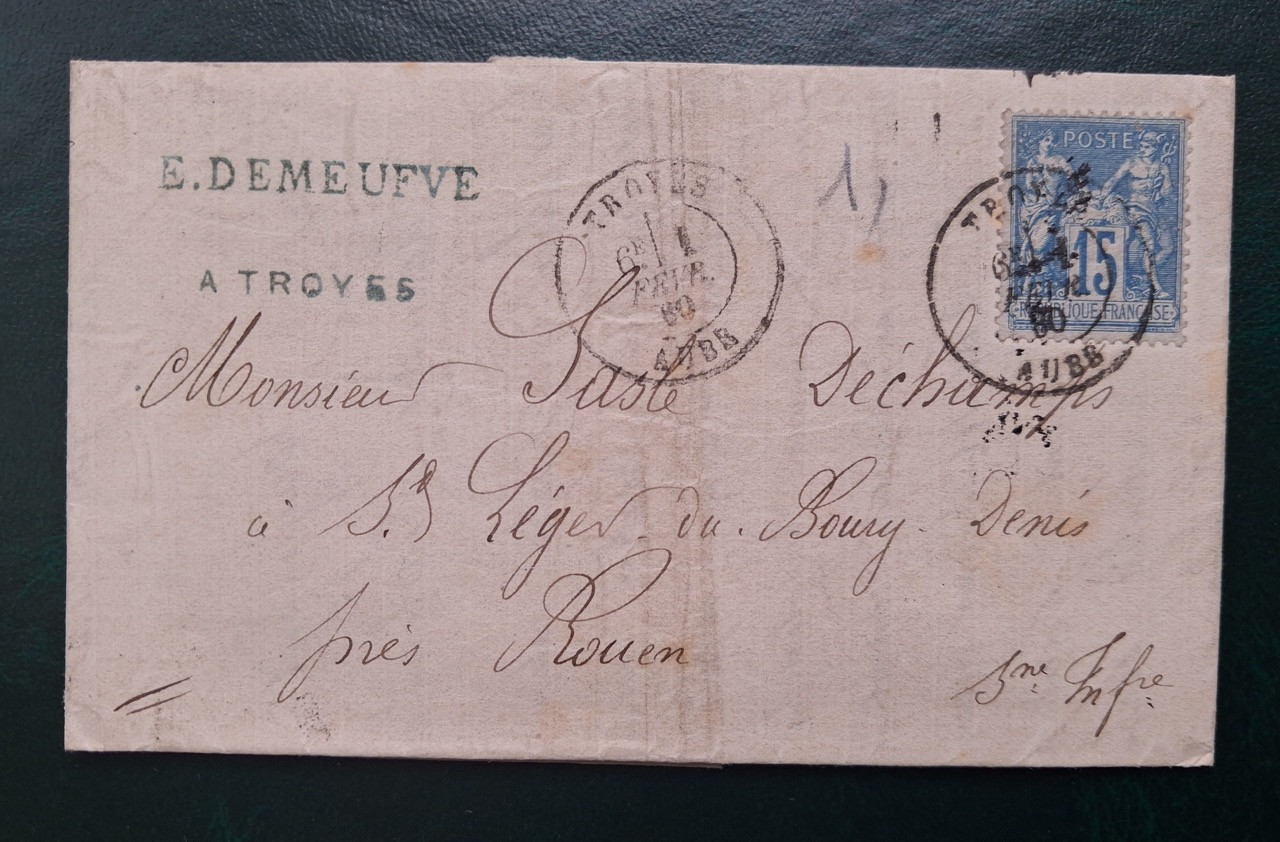 E. DEMEUFVE
A TROYES
TROYES
6E 1
FEVR.
80
AUBE
1,
POSTE
15
REPUBLIQUE FRANÇAISE
TROYES
6E 1
FEVR.
80
AUBE
Monsieur Déchamps
à St Léger du Bourg Denis
près Rouen
Sne Infre